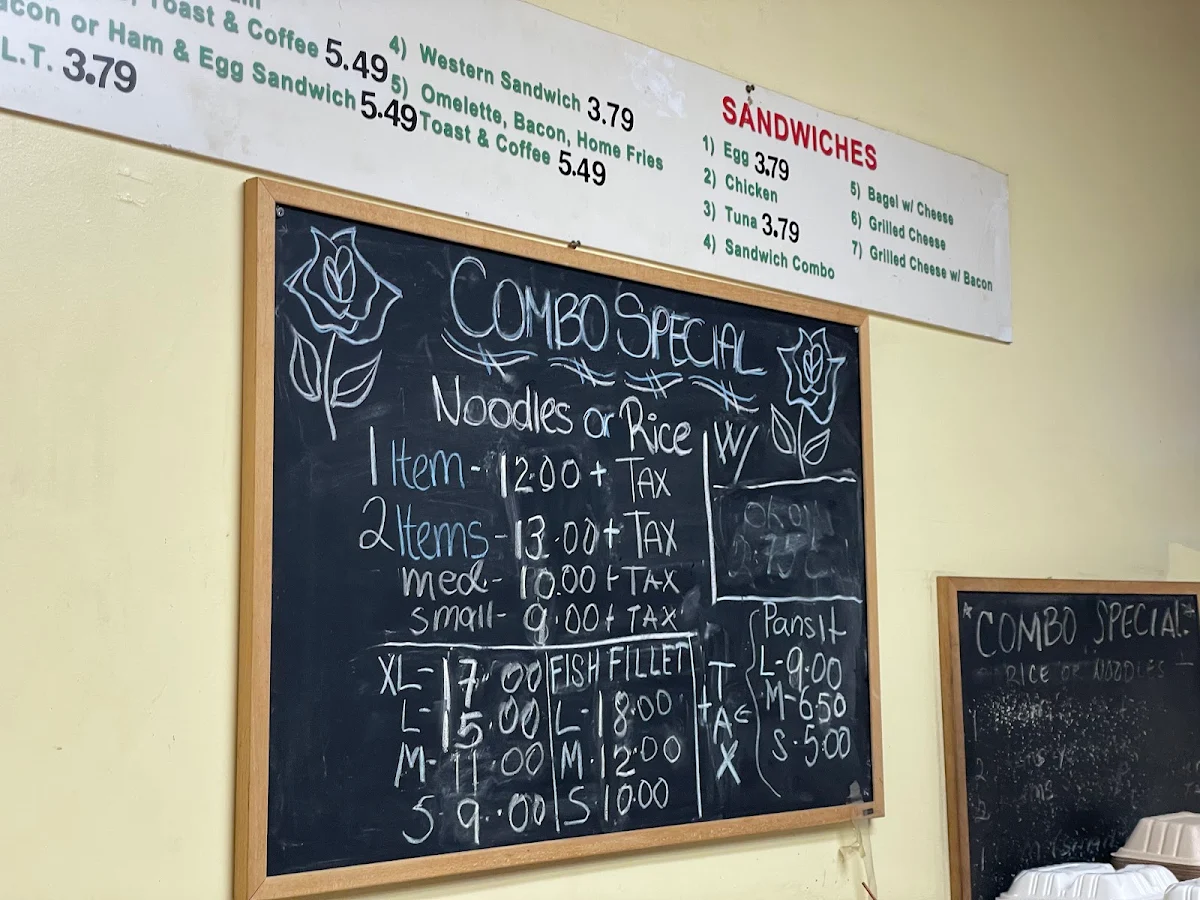 Toast & Coffee 5.49
acon or Ham & Egg Sandwich 5.49
L.T. 3.79
4) Western Sandwich 3.79
5) Omelette, Bacon, Home Fries
Toast & Coffee 5.49
SANDWICHES
1) Egg 3.79
2) Chicken
3) Tuna 3.79
4) Sandwich Combo
5) Bagel w/ Cheese
6) Grilled Cheese
7) Grilled Cheese w/ Bacon
COMBO SPECIAL
Noodles or Rice
W/
1 Item - 12.00 + TAX
2 Items - 13.00 + TAX
med - 10.00 + TAX
small - 9.00 + TAX
XL - 17.00
L - 15.00
M - 11.00
S 9.00
FISH FILLET
L - 18.00
M . 12.00
S 10.00
+ TAX
Pansit
L - 9.00
M - 6.50
S . 5.00
COMBO SPECIAL
RICE OR NOODLES